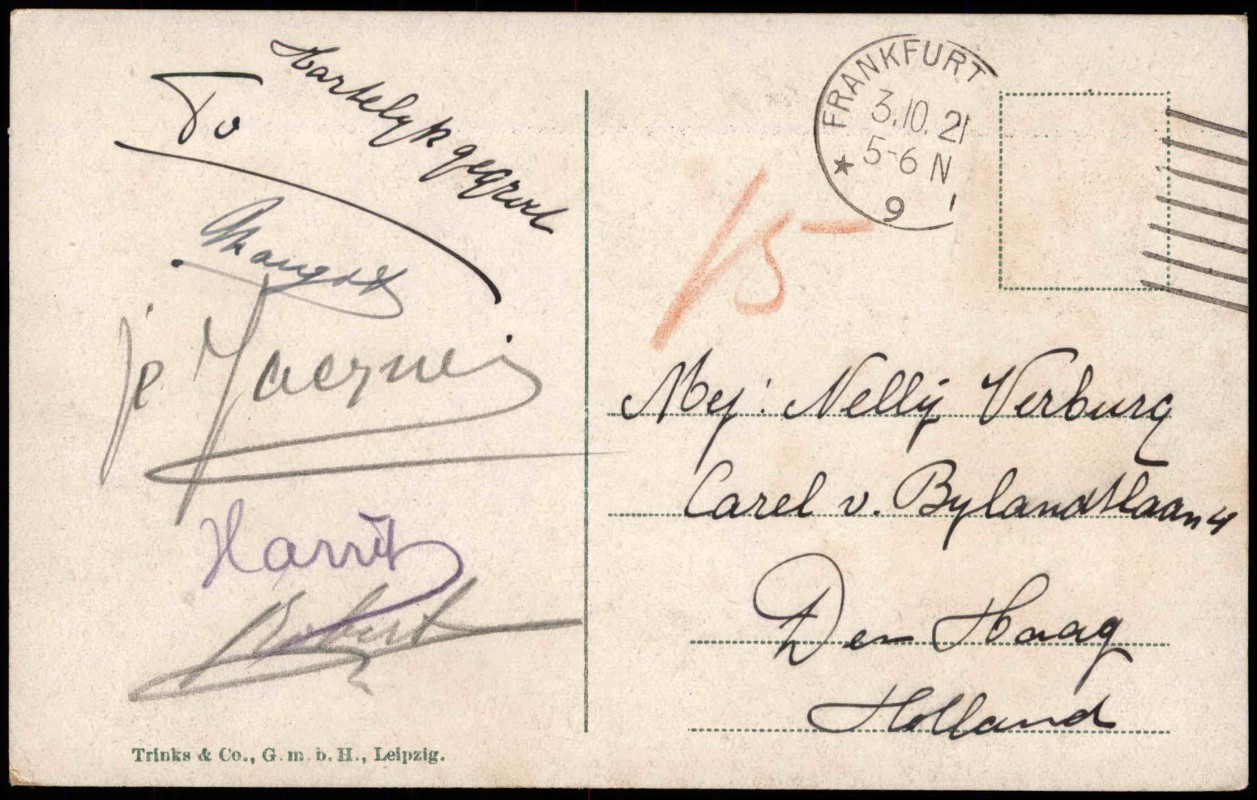 Hartelyk gegroet
To
Margot
Harrÿ
Robert
Trinks & Co., G. m. b. H., Leipzig.
FRANKFURT
3.10.21
5-6 N
★ 9
15-
Mej: Nelly Verburg
Carel v. Bylandtlaan 4
Den Haag
Holland